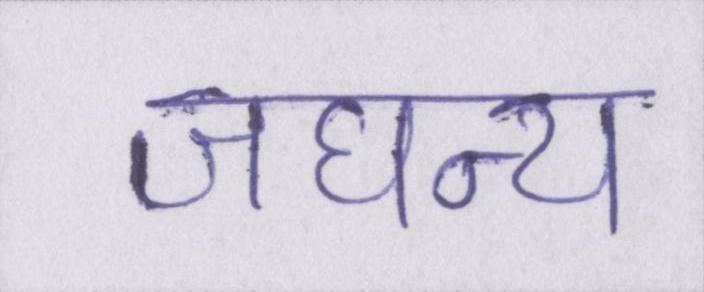 जघन्य